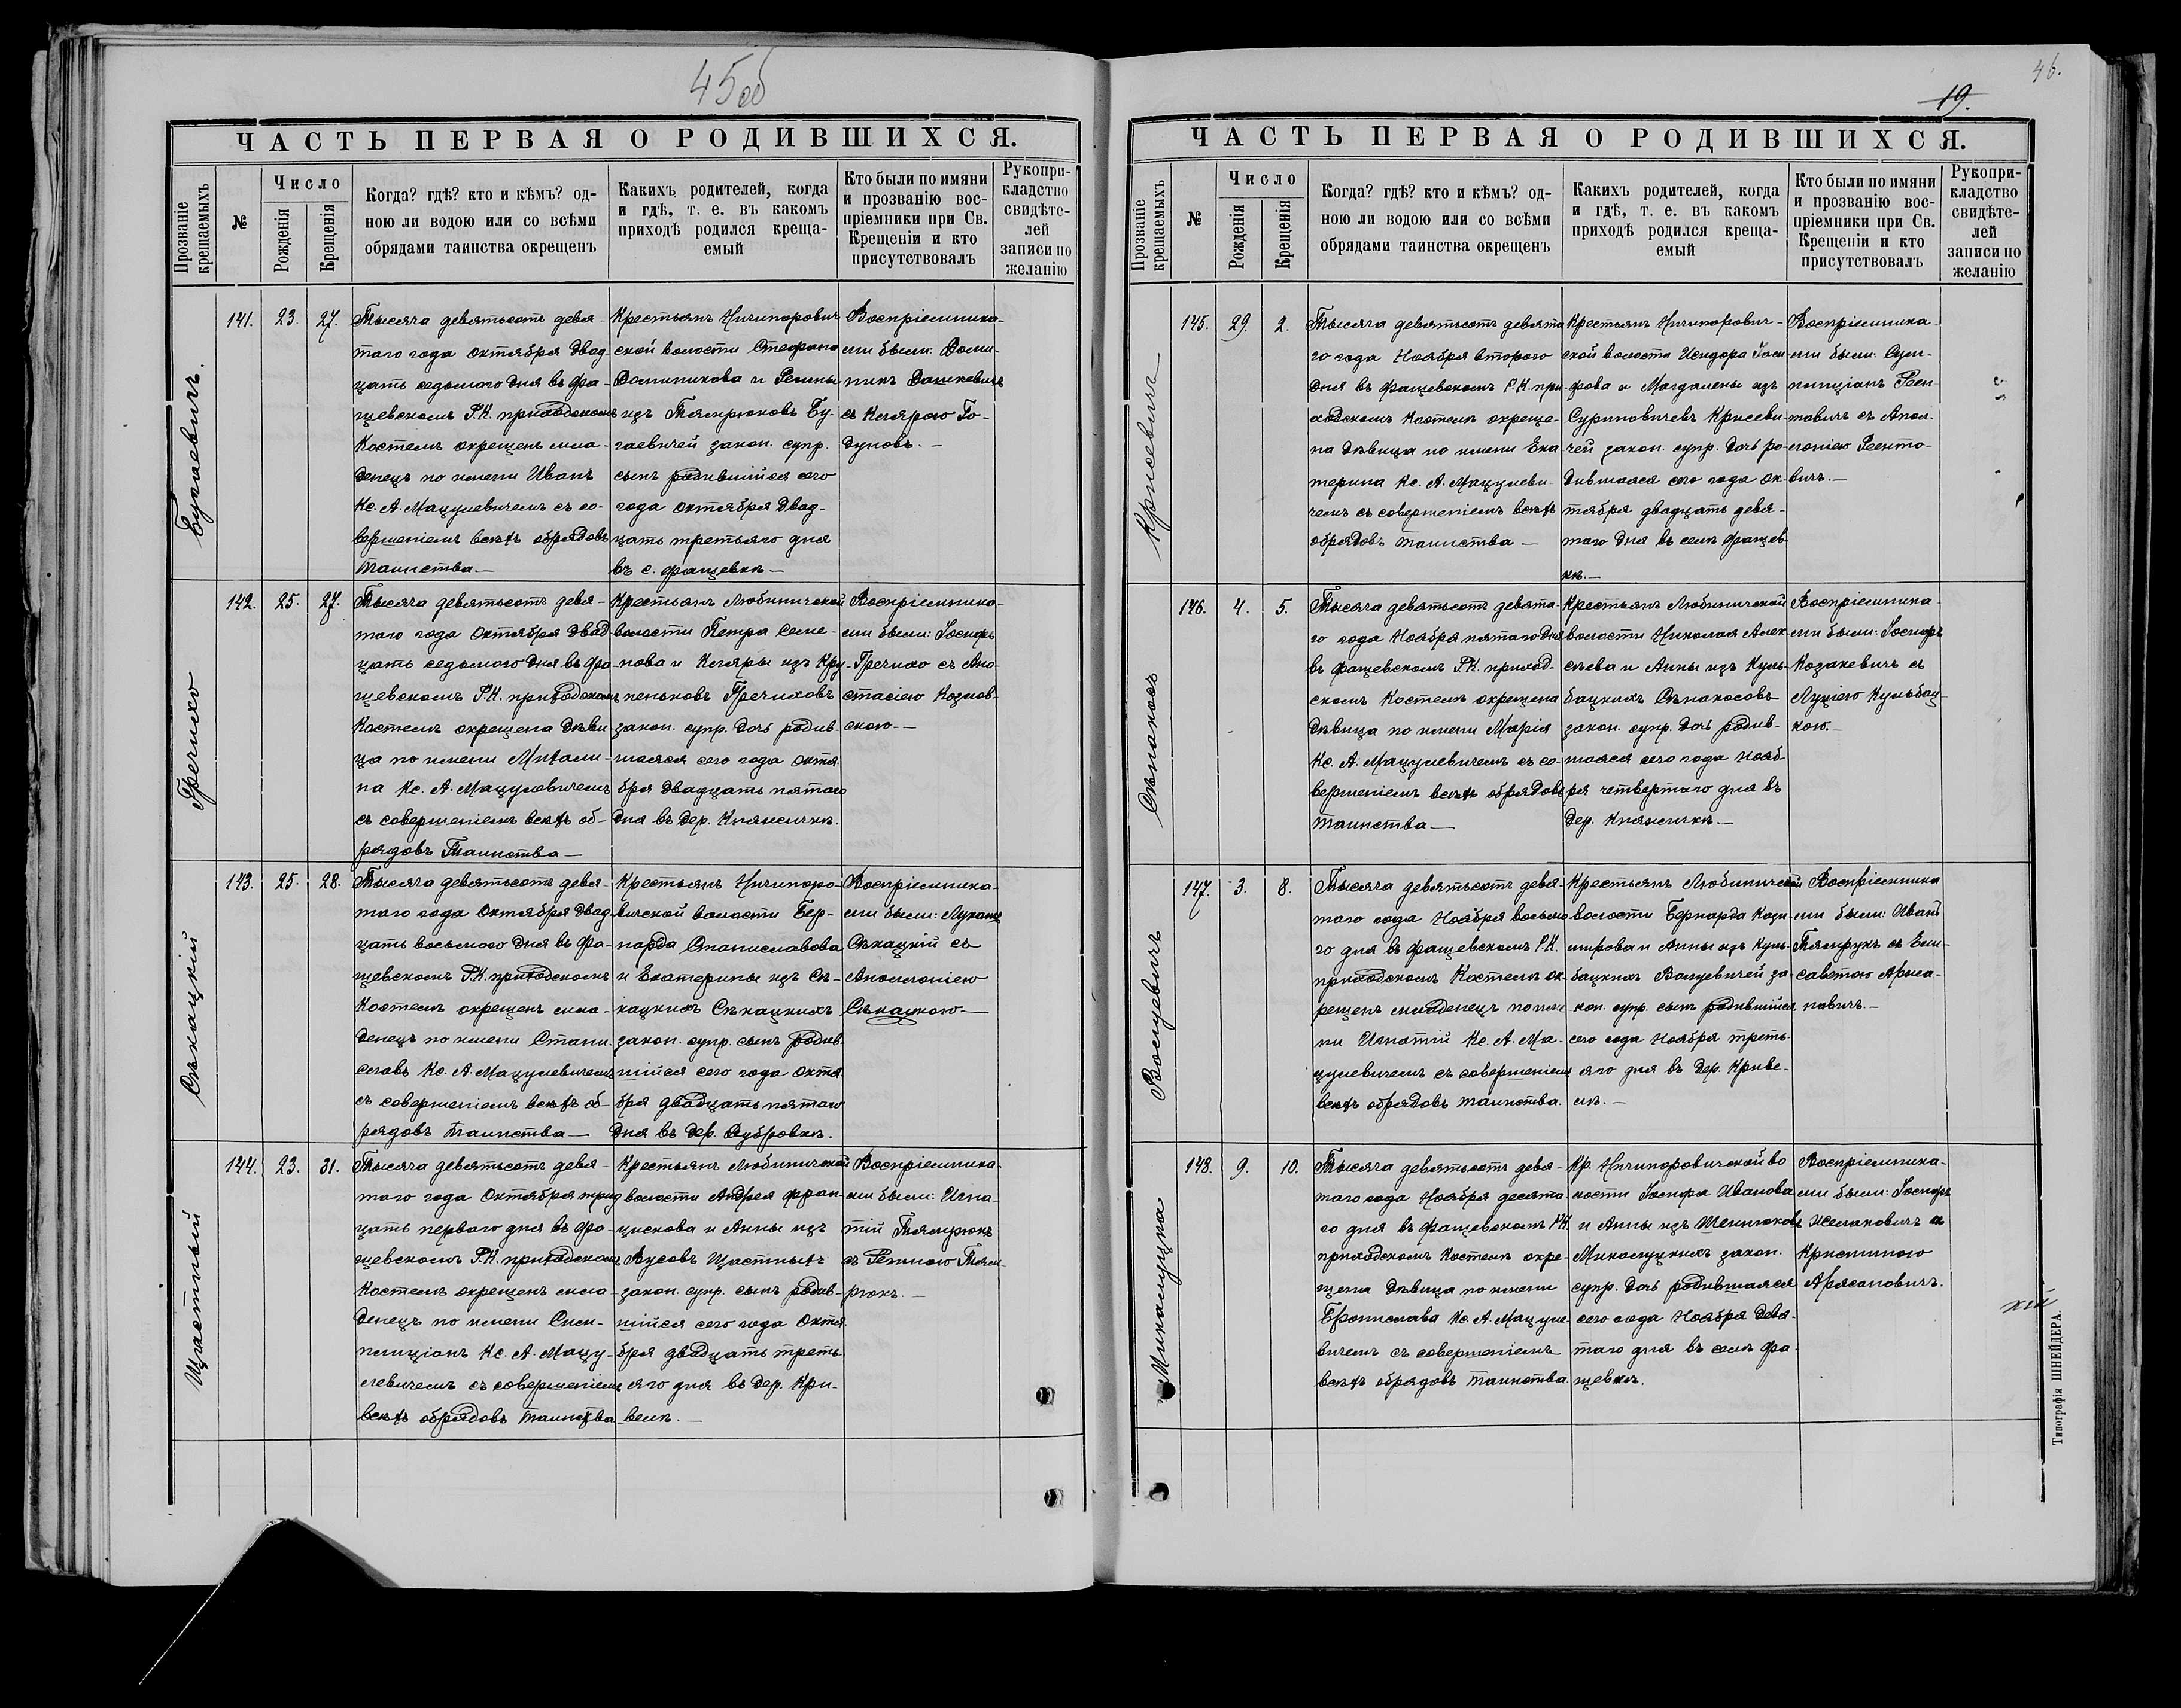 45 об
ЧАСТЬ ПЕРВАЯ О РОДИВШИХСЯ.
Прозваніе крещаемыхъ
№
Число
Рожденія
Крещенія
Когда? гдѣ? кто и кѣмъ? од-
ною ли водою или со всѣми
обрядами таинства окрещенъ
Какихъ родителей, когда
и гдѣ, т. е. въ какомъ
приходѣ родился креща-
емый
Кто были по имяни
и прозванію вос-
пріемники при Св.
Крещеніи и кто
присутствовалъ
Рукопри-
кладство
свидѣте-
лей
записи по
желанію
141. 23. 27.
Тысяча девятьсотъ девя-
таго года Октября двад-
цать седьмого дня въ Фа-
щевскомъ Р.К. приходскомъ
Костелѣ окрещенъ мла-
денецъ по имени Иванъ
Кс. А. Мацулевичемъ съ со-
вершеніемъ всѣхъ обрядовъ
Таинства.—
Крестьянъ Ничипорович-
ской волости Стефана
Доминикова и Регины
изъ Тямрюковъ Бу-
гаевичей закон. супр.
сынъ родившійся сего
года Октября двад-
цать третьяго дня
въ с. Фащевкѣ—
Воспріемника-
ми были: Доми-
никъ Дашкевичъ
съ Клярою Го-
дуновъ.—
Гречихо
142. 25. 27.
Тысяча девятьсотъ девя-
таго года Октября двад-
цать седьмого дня въ Фа-
щевскомъ Р.К. приходскомъ
Костелѣ окрещена дѣви-
ца по имени Михали-
на Кс. А. Мацулевичемъ
съ совершеніемъ всѣхъ об-
рядовъ Таинства—
Крестьянъ Любиничской
волости Петра Семе-
нова и Кляры изъ Кру-
пеньковъ Гречиховъ
закон. супр. дочь родив-
шаяся сего года Октя-
бря двадцать пятого
дня въ дер. Княжичкѣ.
Воспріемника-
ми были: Іосифъ
Гречихо съ Ана-
стасіею Козлов-
скою.—
Сѣкацкій
143. 25. 28.
Тысяча девятьсотъ девя-
таго года Октября двад-
цать восьмого дня въ Фа-
щевскомъ Р.К. приходскомъ
Костелѣ окрещенъ мла-
денецъ по имени Стани-
славъ Кс. А. Мацулевичемъ
съ совершеніемъ всѣхъ об-
рядовъ Таинства—
Крестьянъ Ничипоро-
вичской волости Бер-
нарда Станиславова
и Екатерины изъ Сѣ-
кацкихъ Сѣкацкихъ
закон. супр. сынъ родив-
шійся сего года Октя-
бря двадцать пятого
дня въ дер. Дубровкѣ.
Воспріемника-
ми были: Лукашъ
Сѣкацкій съ
Аполлоніею
Сѣкацкою—
Щастный
144. 23. 31.
Тысяча девятьсотъ девя-
таго года Октября трид-
цать перваго дня въ Фа-
щевскомъ Р.К. приходскомъ
Костелѣ окрещенъ мла-
денецъ по имени Сим-
плиціанъ Кс. А. Мацу-
левичемъ съ совершеніемъ
всѣхъ обрядовъ Таинства
Крестьянъ Любиничской
волости Андрея Фран-
цискова и Анны изъ
Вусовъ Щастныхъ
закон. супр. сынъ родив-
шійся сего года Октя-
бря двадцать треть-
яго дня въ дер. Кри-
велѣ.—
Воспріемника-
ми были: Игна-
тій Тямрюкъ
съ Региною Тям-
рюкъ.—
46.
19.
ЧАСТЬ ПЕРВАЯ О РОДИВШИХСЯ.
Прозваніе крещаемыхъ
№
Число
Рожденія
Крещенія
Когда? гдѣ? кто и кѣмъ? од-
ною ли водою или со всѣми
обрядами таинства окрещенъ
Какихъ родителей, когда
и гдѣ, т. е. въ какомъ
приходѣ родился креща-
емый
Кто были по имяни
и прозванію вос-
пріемники при Св.
Крещеніи и кто
присутствовалъ
Рукопри-
кладство
свидѣте-
лей
записи по
желанію
Крисевичъ
145. 29. 2.
Тысяча девятьсотъ девята-
го года Ноября второго
дня въ Фащевскомъ Р.К. при-
ходскомъ Костелѣ окреще-
на дѣвица по имени Ека-
терина Кс. А. Мацулеви-
чемъ съ совершеніемъ всѣхъ
обрядовъ таинства—
Крестьянъ Ничипорович-
ской волости Исидора Іоси-
фова и Магдалены изъ
Суриновичевъ Крисеви-
чей закон. супр. дочь ро-
дившаяся сего года Ок-
тября двадцать девя-
таго дня въ селѣ Фащев-
кѣ.—
Воспріемника-
ми были: Сим-
плиціанъ
съ Апол-
лоніею
146. 4. 5.
Тысяча девятьсотъ девята-
го года Ноября пятаго дня
въ Фащевскомъ Р.К. приход-
скомъ Костелѣ окрещена
дѣвица по имени Марія
Кс. А. Мацулевичемъ съ со-
вершеніемъ всѣхъ обрядовъ
Таинства—
Крестьянъ Любиничской
волости Николая Алек-
сѣева и Анны изъ Куль-
бацкихъ Сѣнокосовъ
закон. супр. дочь родив-
шаяся сего года Нояб-
ря четвертаго дня въ
дер. Княжичкѣ—
Воспріемника-
ми были: Іосифъ
Козакевичъ съ
Луціею Кульбац-
кою.—
147. 3. 8.
Тысяча девятьсотъ девя-
таго года Ноября восьмо-
го дня въ Фащевскомъ Р.К.
приходскомъ Костелѣ ок-
рещенъ младенецъ по име-
ни Игнатій Кс. А. Ма-
цулевичемъ съ совершеніемъ
всѣхъ обрядовъ таинства.
Крестьянъ Любиничской
волости Бернарда Кази-
мирова и Анны изъ Куль-
бацкихъ за-
кон. супр. сынъ родившійся
сего года Ноября треть-
яго дня въ дер. Криве-
лѣ.—
Воспріемника-
ми были: Иванъ
Тямрукъ съ Ели-
саветою
148. 9. 10.
Тысяча девятьсотъ девя-
таго года Ноября десята-
го дня въ Фащевскомъ Р.К.
приходскомъ Костелѣ окре-
щена дѣвица по имени
Бронислава Кс. А. Мацуле-
вичемъ съ совершеніемъ
всѣхъ обрядовъ таинства
Кр. Ничипоровичской во-
лости Іосифа Иванова
и Анны изъ
закон.
супр. дочь родившаяся
сего года Ноября девя-
таго дня въ селѣ Фа-
щевкѣ.
Воспріемника-
ми были: Іосифъ
Кристиною
Типографія ШНЕЙДЕРА.